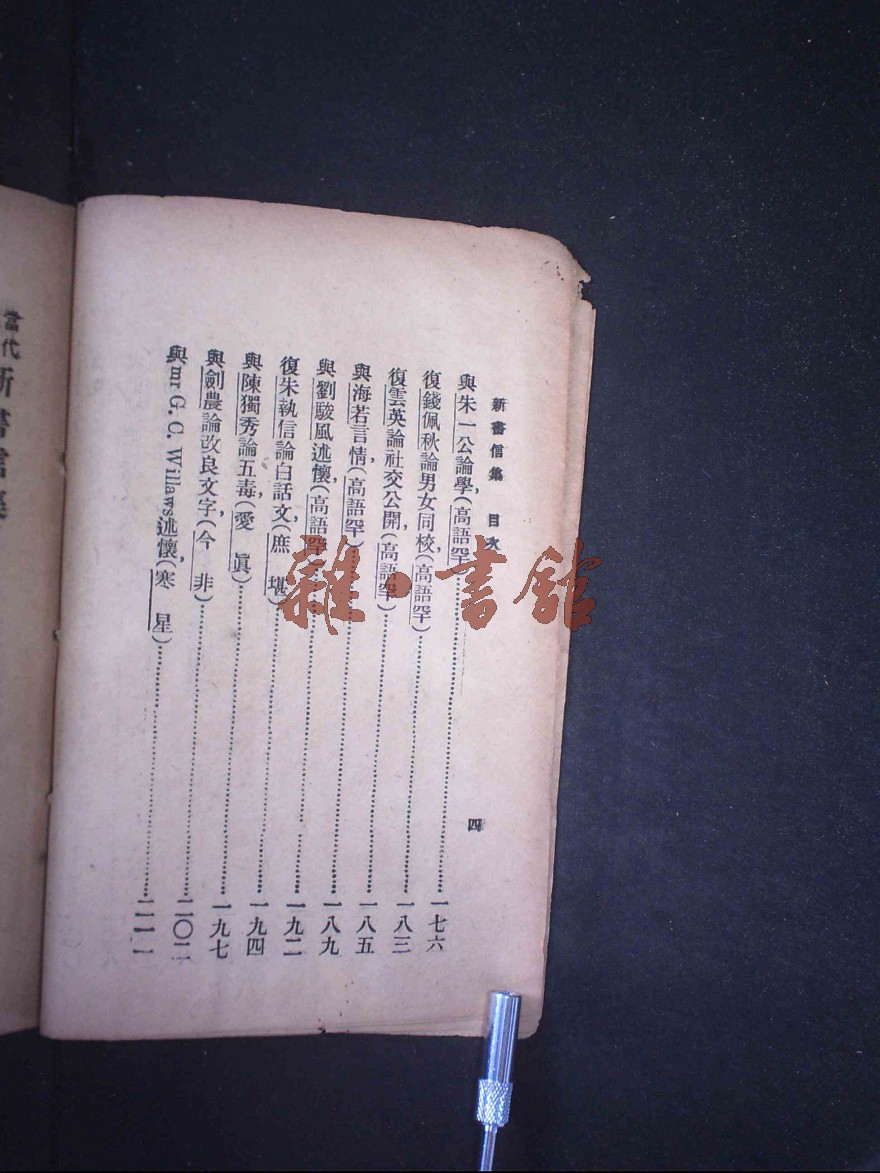 新書信集　目次
四
與朱一公論學，(高語罕)……一七六
復錢佩秋論男女同校，(高語罕)……一八三
復雲英論社交公開，(高語罕)……一八五
與海若言情，(高語罕)……一八九
與劉駿風述懷，(高語罕)……一九二
復朱執信論白話文，(庶　堪)……一九四
與陳獨秀論五毒，(愛　眞)……一九七
與劍農論改良文字，(今　非)……二〇二
與mr G. C. Willaws述懷，(寒　星)……二一一
當代新書信集
雜·書館